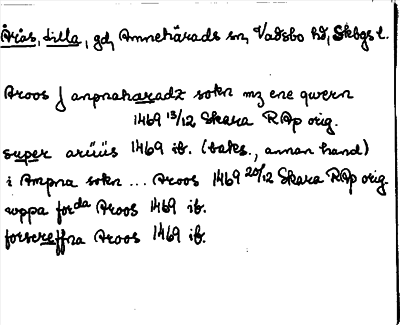 Årås, Lilla, gd, Amnehärads sn, Vadsbo hd, Skbgs l.
Aroos j anpnaharadz sokn mz ene qwern
1469 13/12 Skara RAp orig.
super arüüs 1469 ib. (baks., annan hand)
i Ampna sokn ... Aroos 1469 20/12 Skara RAp orig
uppa forda Aroos 1469 ib.
forscreffna Aroos 1469 ib.